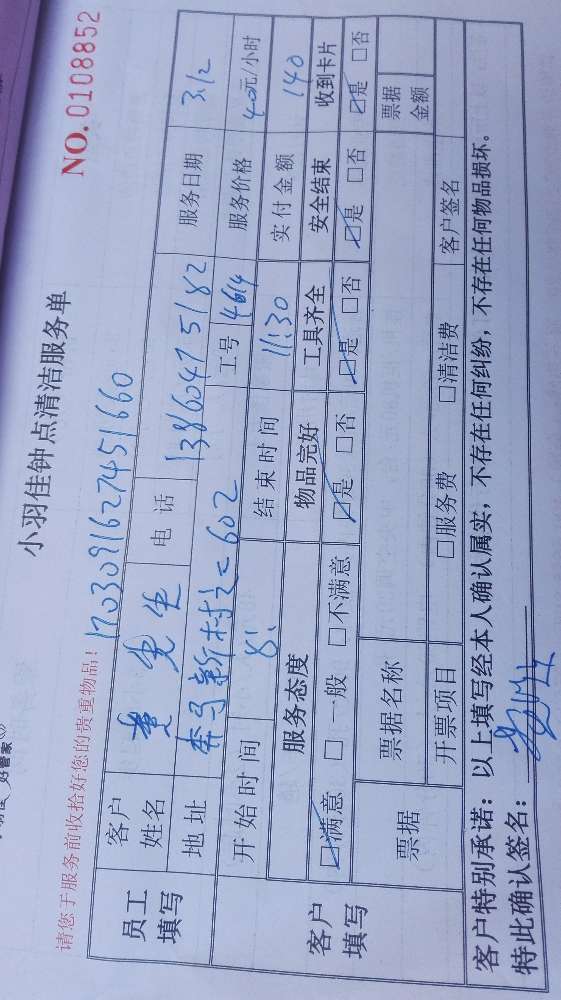 好管家
小羽佳钟点清洁服务单
NO.0108852
请您于服务前收拾好您的贵重物品！
17030916274451660
员工填写 客户姓名 黄先生 电话 13860475182 服务日期 3.12
地址 602 工号 4614 服务价格 40元/小时
客户填写 开始时间 8: 结束时间 11:30 实付金额 140
服务态度 物品完好 工具齐全 安全结束 收到卡片
☑满意 □一般 □不满意 ☑是 □否 ☑是 □否 ☑是 □否 ☑是 □否
票据 票据名称 票据金额
开票项目 □服务费 □清洁费 客户签名
客户特别承诺：以上填写经本人确认属实，不存在任何纠纷，不存在任何物品损坏。
特此确认签名：